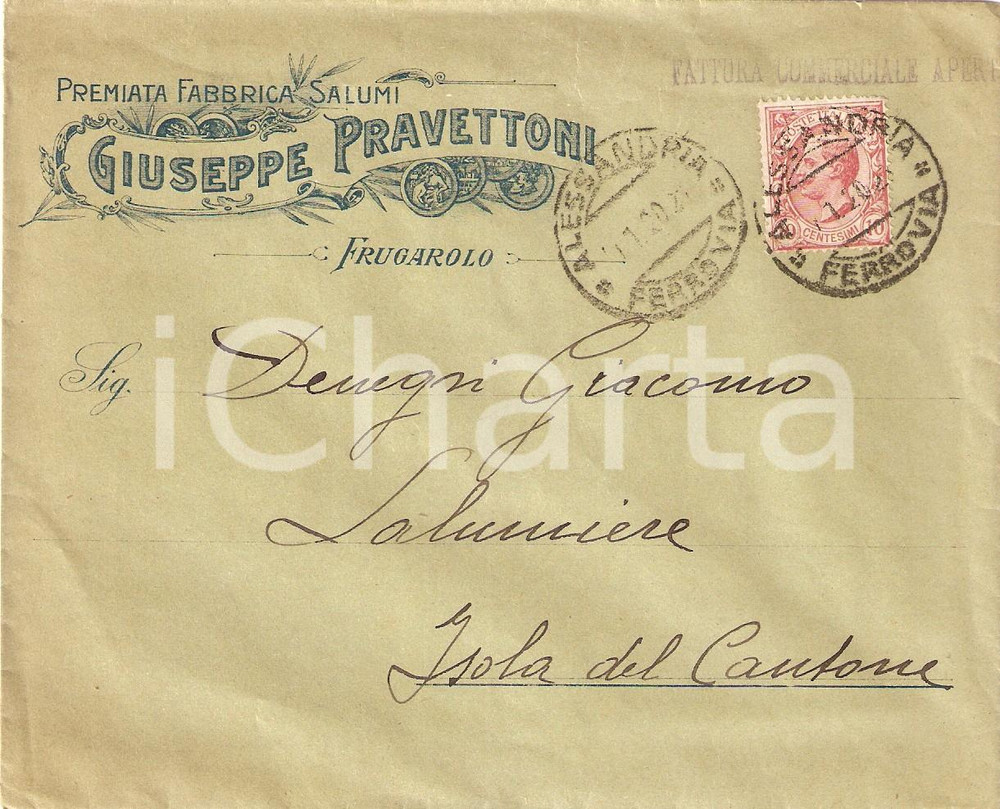 FATTURA COMMERCIALE APER
PREMIATA FABBRICA SALUMI
GIUSEPPE PRAVETTONI
FRUGAROLO
ALESSANDRIA
FERROVIA
POSTE
CENTESIMI 10
ALESSANDRIA
FERROVIA
Sig. Denegri Giacomo
Salumiere
Isola del Cantone
iCharta